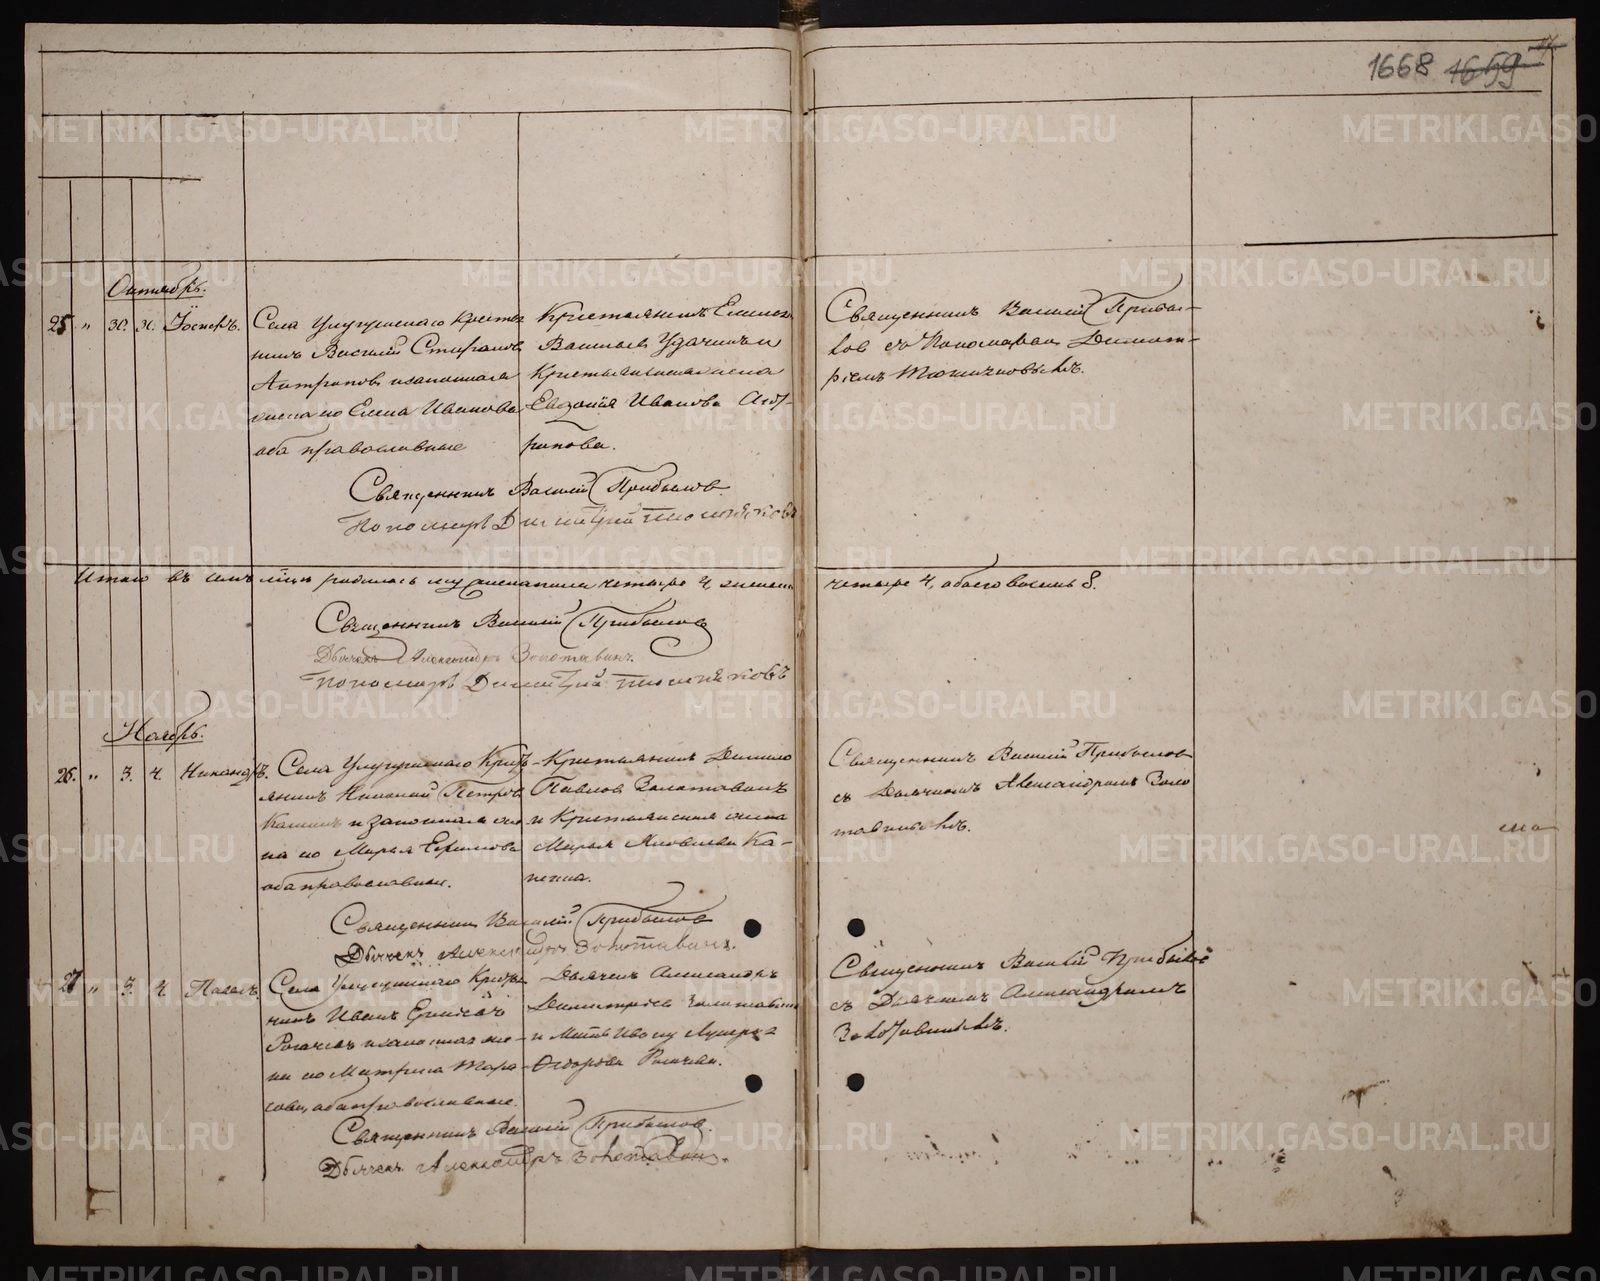 1668 1659
Октябрь.
25 " 30. 31. Іосифъ.
Села крестья-
нинъ Василій Стефановъ
Антроповъ и законная
жена его Елена Иванова
оба православные
Крестьянинъ
Васильевъ и
Крестьянская жена
Евдокія Иванова Ант-
ропова.
Священникъ Василій Прибы-
ловъ съ Пономаремъ Димит-
ріемъ Тюшняковымъ.
Священникъ Василій Прибыловъ
Пономарь Димитрій Тюшняковъ
Итого въ семъ м-цѣ родилось мужескаго пола четыре 4, женска четыре 4, обоего восемь 8.
Священникъ Василій Прибыловъ
Дьячекъ Александръ Золотавинъ.
Пономарь Димитрій Тюшняковъ
Ноябрь.
26. " 3. 4. Никандръ.
Села Крест-
янинъ Николай Петровъ
и законная же-
на его Марья Ефимова
оба православные.
Крестьянинъ
Павловъ Золотавинъ
и Крестьянская жена
Марья Яковлева Ка-
пина.
Священникъ Василій Прибыловъ
съ Дьячкомъ Александромъ Золо
тавинымъ.
Священникъ Василій Прибыловъ
Дьячекъ Александръ Золотавинъ.
27 " 3. 4. Павелъ.
Села Крестья
нинъ Иванъ
Рогачевъ и законная же-
на его Матрена Тара-
сова, оба православные.
Дьячекъ Александръ
Димитріевъ Золотавинъ
и
Федорова Рогачева.
Священникъ Василій Прибыловъ
съ Дьячкомъ Александромъ
Золотавинымъ.
Священникъ Василій Прибыловъ.
Дьячекъ Александръ Золотавинъ.
METRIKI.GASO-URAL.RU